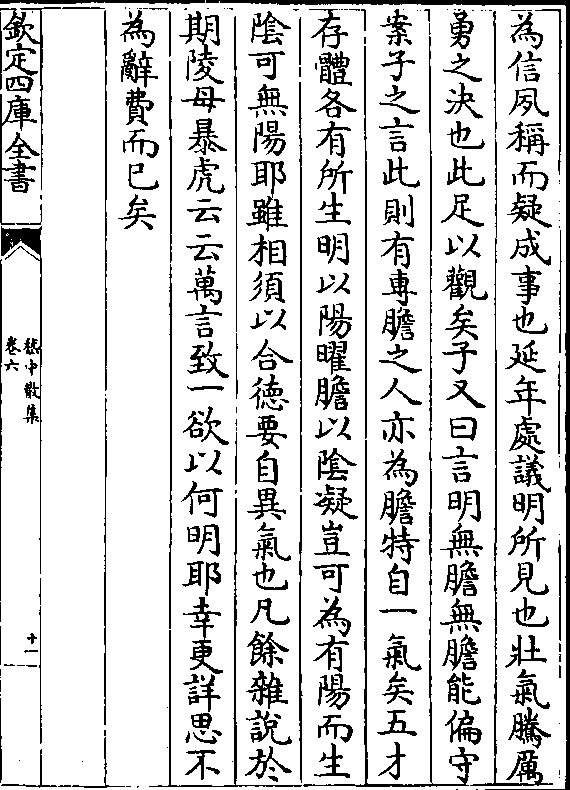 為信夙稱而疑成事也延年處議明所見也壯氣騰厲
勇之決也此足以觀矣子又曰言明無膽無膽能偏守
案子之言此則有專膽之人亦為膽特自一氣矣五才
存體各有所生明以陽曜膽以陰凝豈可為有陽而生
陰可無陽耶雖相須以合德要自異氣也凡餘雜說於
期陵母暴虎云云萬言致一欲以何明耶幸更詳思不
為辭費而已矣
欽定四庫全書
嵇中散集
卷六
十一